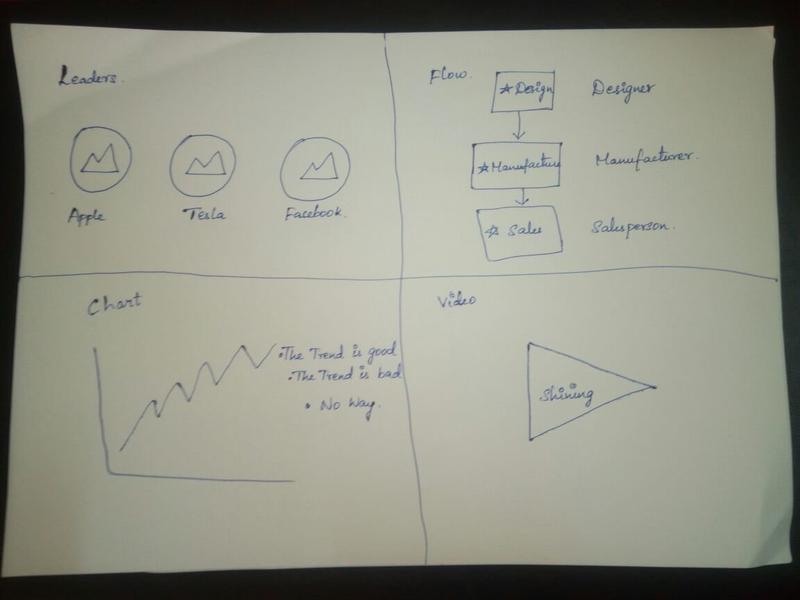 Leaders.
Apple
Tesla
Facebook.
Flow.
☆ Design
Designer
☆ Manufacture
Manufacturer.
☆ Sales
Salesperson.
Chart
• The Trend is good
• The Trend is bad
• No Way.
Video
Shining